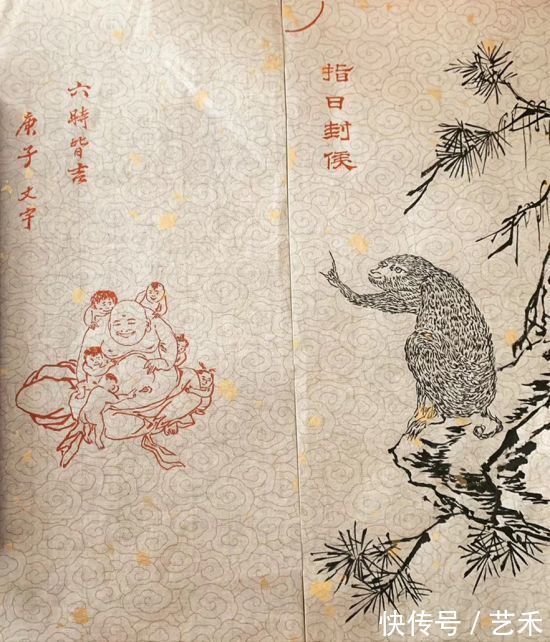 指日封侯
六時皆吉
庚子文宇
快传号/艺禾